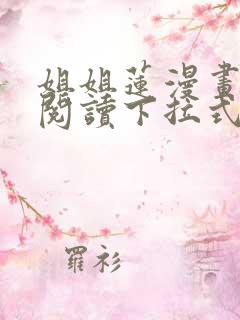 姐姐蓮漫畫
閱讀下拉式
羅衫